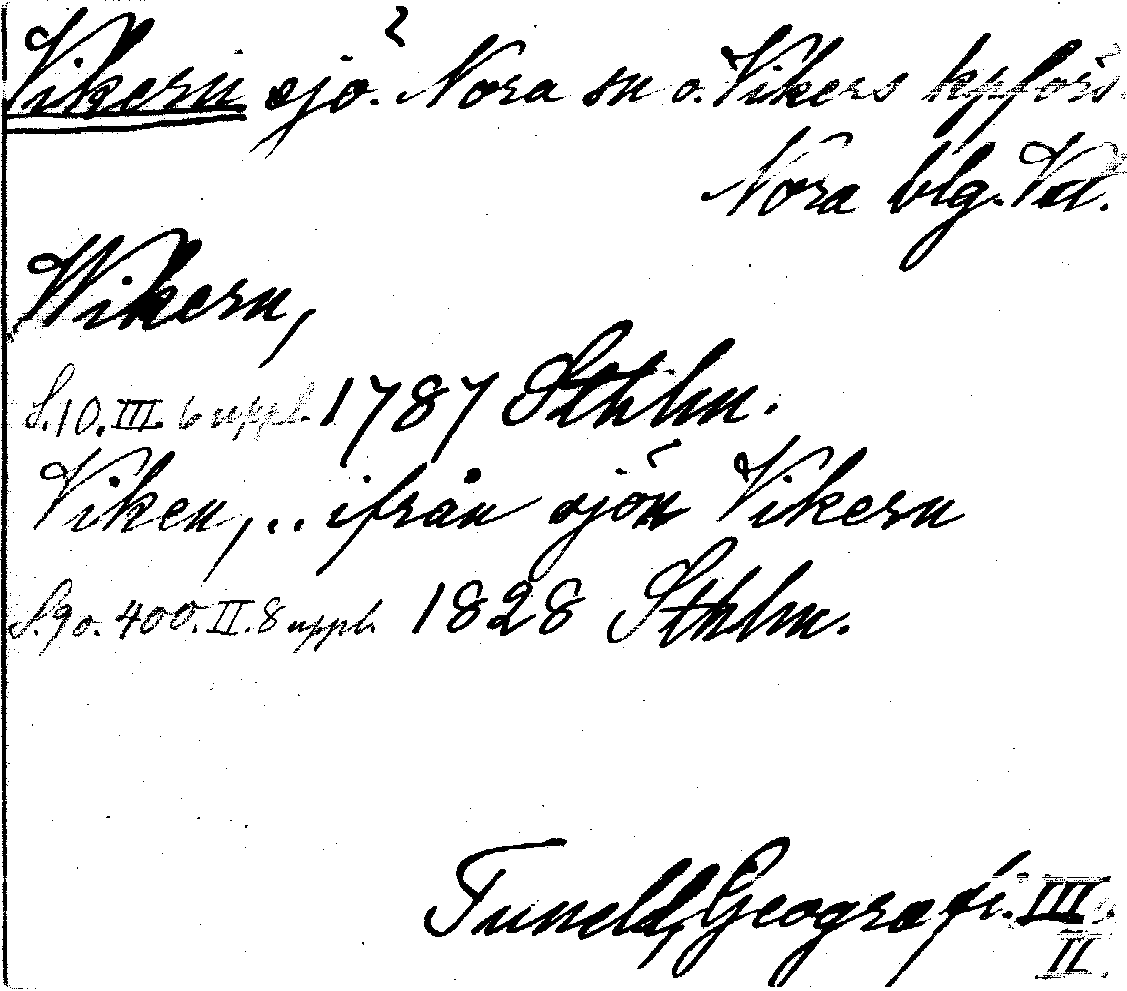 Vikern sjö. Nora sn o. Vikers kpförs.
Nora blg. Vstl.
Wikern,
S. 10. III. 6 uppl. 1787 Sthlm.
Viken, .. ifrån sjön Vikern
S. 90. 400. II. 8 uppl. 1828 Sthlm.
Tuneld, Geografi. III.
II.